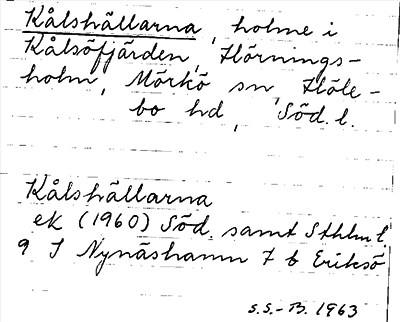 Kålshällarna, holme i
Kålsöfjärden, Hörnings-
holm, Mörkö sn, Höle-
bo hd, Söd. l.
Kålshällarna
ek (1960) Söd. samt Sthlm l.
9 I Nynäshamn 7 b Eriksö
S.S.-B. 1963